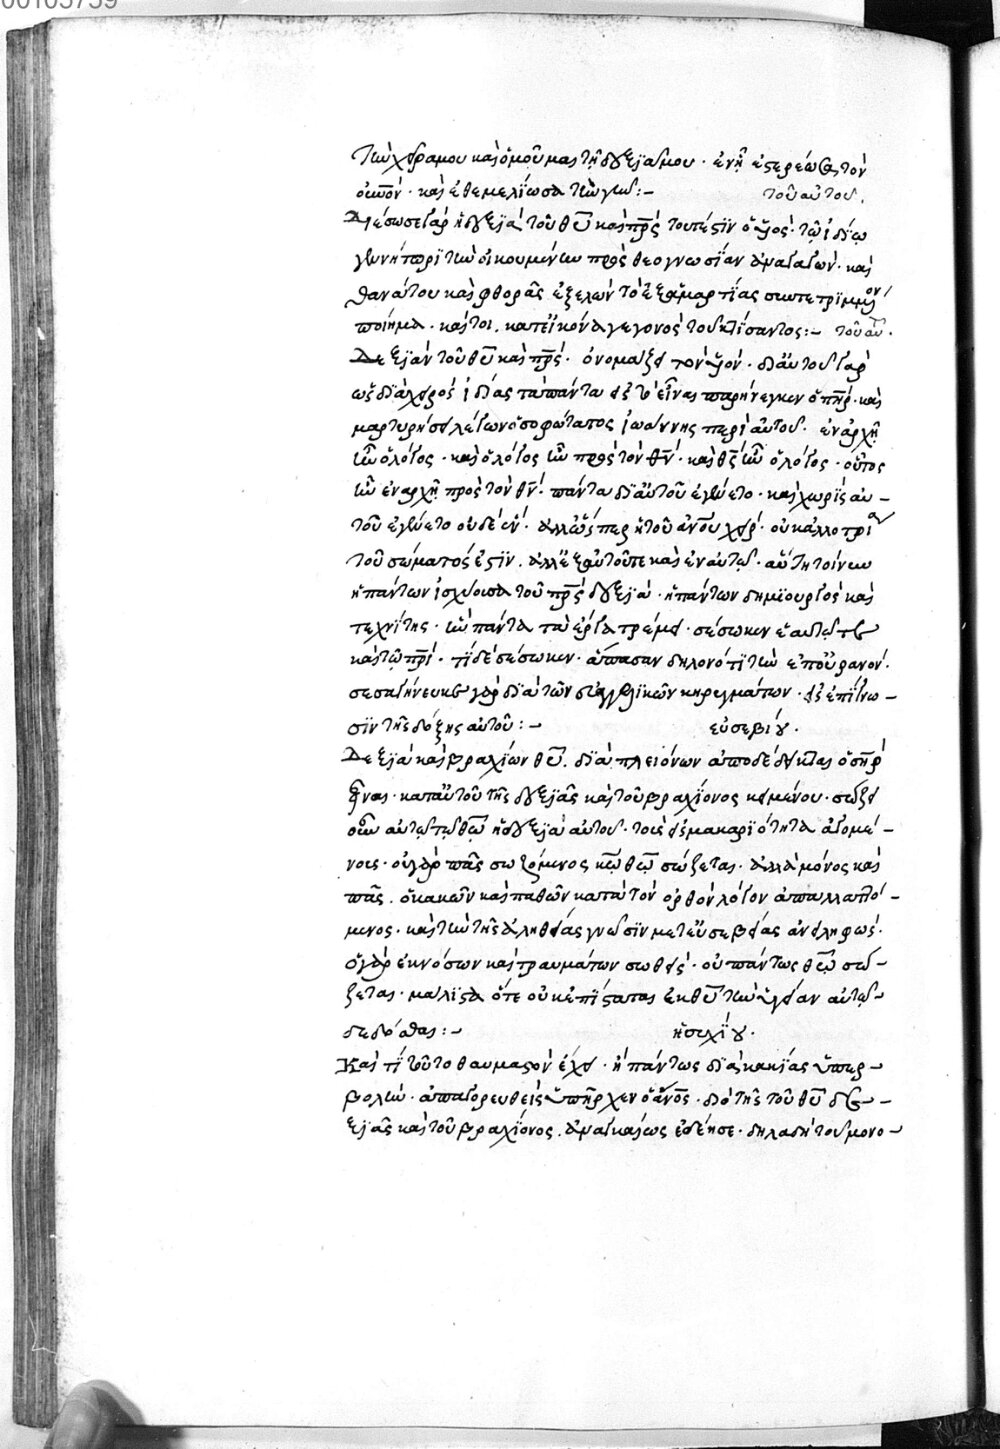 00105759
τὴν χεῖρά μου καὶ ὀμοῦμαι τῆ δεξιᾶ μου · ἐν ῆ ἐστερέωσα τὸν
οὐνόν · καὶ ἐθεμελίωσα τὴν γῆν :~ τοῦ αὐτοῦ .
Διέσωσε γὰρ ἡ δεξιὰ τοῦ θυ καὶ πρς τουτέστιν ὁ υἱος · τῶ ἰδίω
τὴν οἰκουμένην πρὸς θεογνωσίαν ἀναγαγών · καὶ
θανάτου καὶ φθορᾶς ἐξελὼν τὸ ἐξ ἁμαρτίας συντετριμμένον
ποίημα · καίτοι κατ' εἰκόνα γεγονὸς τοῦ κτίσαντος :~ τοῦ αὐ .
Δεξιὰν τοῦ θυ καὶ πρς · ὀνομάζει τὸν υἱόν · δι' αὐτοῦ γὰρ
ὡς διὰ χειρὸς ἰδίας τὰ πάντα εἰς τὸ εἶναι παρήνεγκεν ὁ πηρ · καὶ
μαρτυρήσει λέγων ὁ σοφώτατος ἰωάννης περὶ αὐτοῦ · ἐν ἀρχῆ
ἦν ὁ λόγος · καὶ ὁ λόγος ἦν πρὸς τὸν θν · καὶ θς ἦν ὁ λόγος · οὗτος
ἦν ἐν ἀρχῆ πρὸς τὸν θν · πάντα δι' αὐτοῦ ἐγένετο · καὶ χωρὶς αὐ-
τοῦ ἐγένετο οὐδὲ ἕν · ἀλλ' ὥσπερ ἡ τοῦ ἀνου χεὶρ · οὐκ ἀλλοτρία
τοῦ σώματός ἐστιν . ἀλλ' ἐξ αὐτοῦ τε καὶ ἐν αὐτῶ · αὕτη τοίνυν
ἡ πάντων ἰσχύουσα τοῦ πρς δεξιά · ἡ πάντων δημιουργὸς καὶ
τεχνίτης · ἣν πάντα τὰ ἔργα τρέμει · σέσωκεν ἑαυτῶ τε
καὶ τῶ πρί · τί δὲ σέσωκεν · ἅπασαν δηλονότι τὴν ἐπ' οὐρανόν ·
σεσαγήνευκε γὰρ διὰ τῶν εὐαγγελικῶν κηρυγμάτων · εἰς ἐπίγνω-
σιν τῆς δόξης αὐτοῦ :~ εὐσεβίου .
Δεξιὰ καὶ βραχίων θυ . διὰ πλειόνων ἀποδέδεικται ὁ σηρ
εἶναι · κατ' αὐτοῦ τῆς δεξιᾶς καὶ τοῦ βραχίονος κειμένου · σώζει
οὖν αὐτῶ τῶ θω ἡ δεξιὰ αὐτοῦ · τοὺς εἰς μακαριότητα ἀγομέ-
νους · οὐ γὰρ πᾶς σωζόμενος κω θω σώζεται · ἀλλὰ μόνος καὶ
πᾶς . ὁ κακῶν καὶ παθῶν κατὰ τὸν ὀρθὸν λόγον ἀπαλλαττό-
μενος · καὶ τὴν τῆς ἀληθείας γνῶσιν μετ' εὐσεβείας ἀνειληφώς ·
ὁ γὰρ ἐκ νόσων καὶ τραυμάτων σωθεὶς · οὐ πάντως θω σώ-
ζεται · μάλιστα ὅτε οὐκ ἐπίσταται ἐκ θυ τὴν ὑγείαν αὐτῶ
δεδόσθαι :~ ἡσυχίου .
Καὶ τί τοῦτο θαυμαστὸν ἔχει · ἢ πάντως διὰ κακίας ὑπερ-
βολὴν · ἀπαγορευθεὶς ὑπῆρχεν ὁ ἀνος · διὸ τῆς τοῦ θυ δε-
ξιᾶς καὶ τοῦ βραχίονος . ἀναγκαίως ἐδέησε · δηλαδὴ τοῦ μονο-